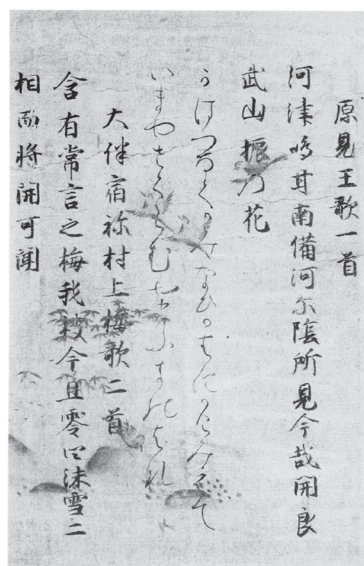 厚見王歌一首
河津鳴甘南備河尓陰所見今哉開良
武山振乃花
かはつなくかみなひかはにかけみえて
いまやさくらむやまふきのはな
大伴宿祢村上梅歌二首
含有常言之梅我枝今旦零四沫雪二
相而將開可聞